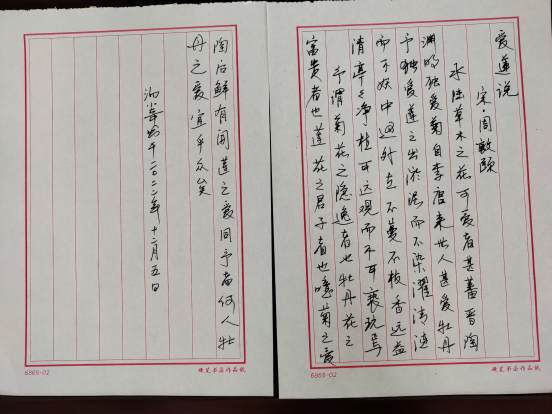 爱莲说
宋·周敦颐
水陆草木之花可爱者甚蕃晋陶
渊明独爱菊自李唐来世人甚爱牡丹
予独爱莲之出淤泥而不染濯清涟
而不妖中通外直不蔓不枝香远益
清亭々净植可远观而不可亵玩焉
予谓菊花之隐逸者也牡丹花之
富贵者也莲花之君子者也噫菊之爱
6865-02
硬笔书法作品纸
陶后鲜有闻莲之爱同予者何人牡
丹之爱宜乎众矣
书于二〇二二年十二月五日
6865-02
硬笔书法作品纸